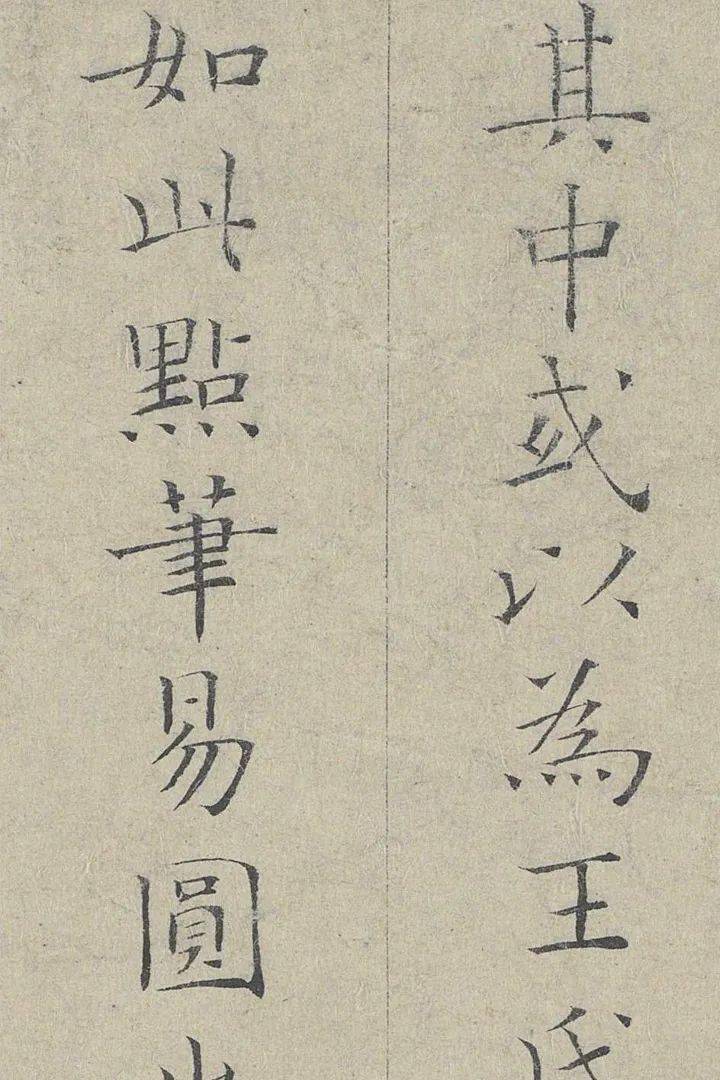 其中或以為王氏
如此點筆易圓